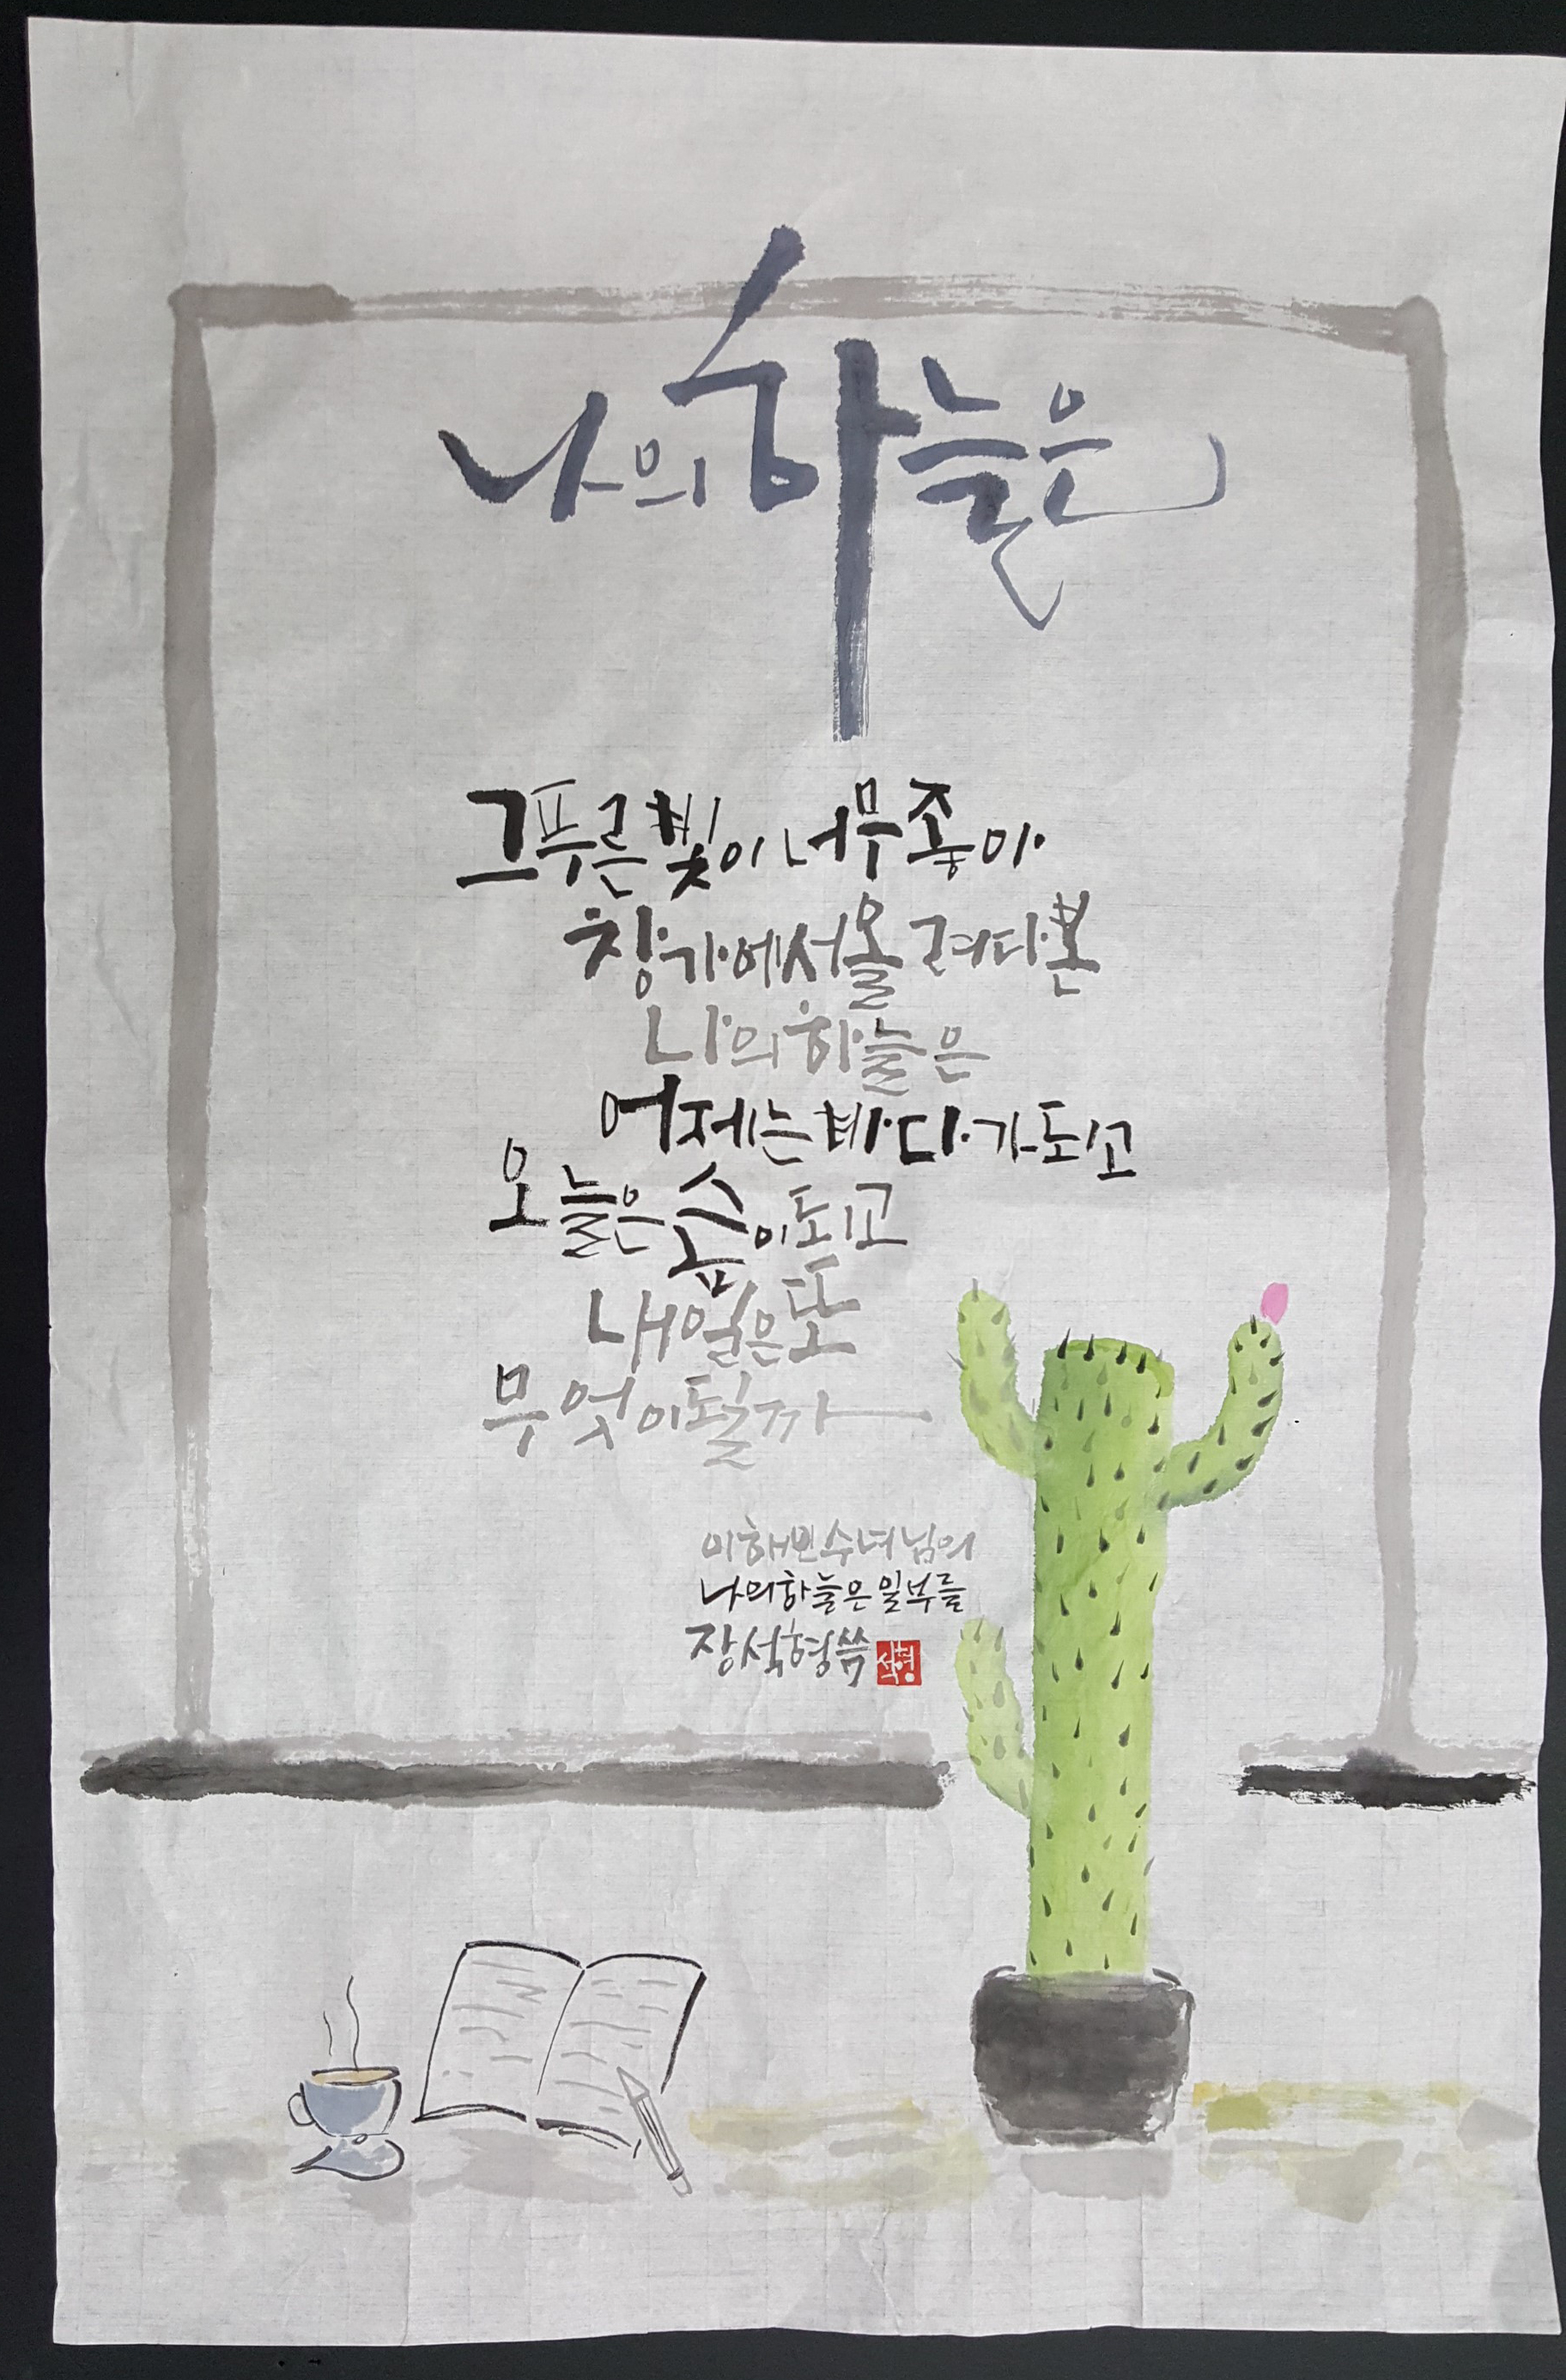 나의 하늘은
그 푸른 빛이 너무 좋아
창가에서 올려다 본
나의 하늘은
어제는 바다가 되고
오늘은 숲이 되고
내일은 또
무엇이 될까
이해인 수녀님의
나의 하늘은 일부를
장석형 씀
석형